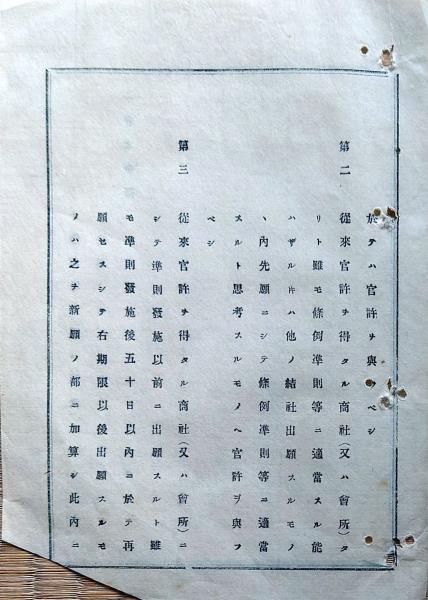 於テハ官許ヲ與フベシ
第二
從來官許ヲ得タル商社(又ハ會所)タ
リト雖モ條例準則等ニ適當スル能
ハザル𪜈ハ他ノ結社出願スルモノ
ヽ內先願ニシテ條例準則等ニ適當
スルト思考スルモノヘ官許ヲ與フ
ベシ
第三
從來官許ヲ得タル商社(又ハ會所)ニ
シテ準則發施以前ニ出願スルト雖
モ準則發施後五十日以內ニ於テ再
願セスシテ右期限以後出願スルモ
ノハ之ヲ新願ノ部ニ加算シ此內ニ